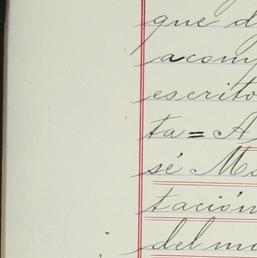 que d
acom
escrito
ta = A
sé Ma
tación
del mo